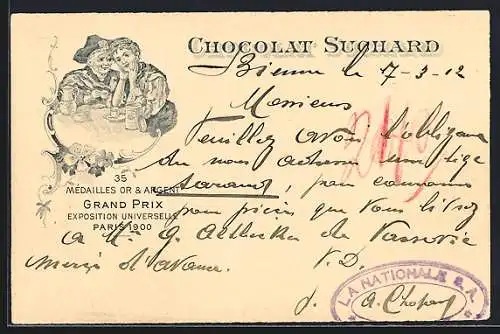 CHOCOLAT SUCHARD
Bienne le 7-3-12
Messieurs
Veuillez avoir l'obligeance
de nous adresser une tige
, pour couronne
35
MÉDAILLES OR & ARGENT
GRAND PRIX
EXPOSITION UNIVERSELLE
PARIS 1900
pour pièces que vous livrez
à Mr G. de
Merci d'avance.
LA NATIONALE S.A.
A. Chopard